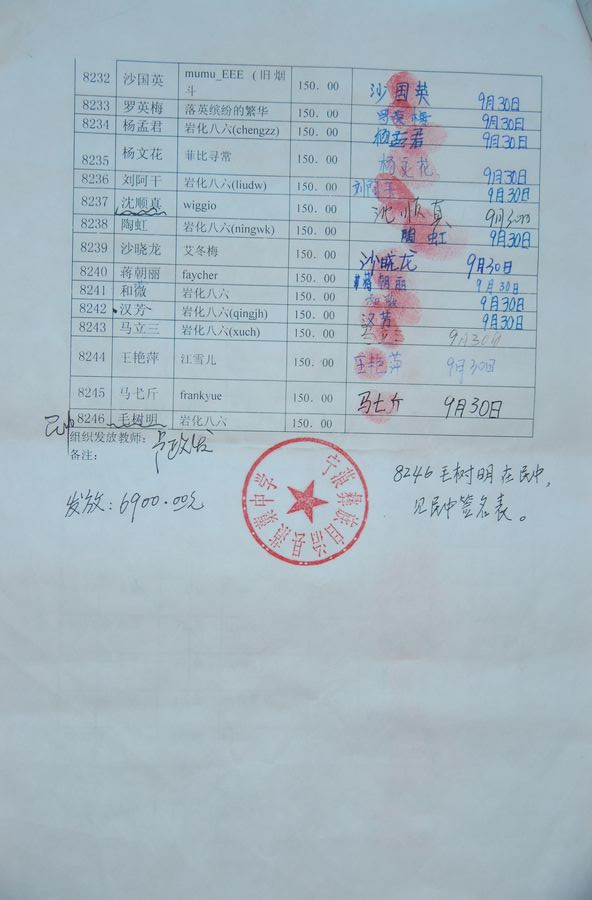 8232 沙国英 mumu_EEE (旧烟斗 150. 00 沙国英 9月30日
8233 罗英梅 落英缤纷的繁华 150. 00 罗英梅 9月30日
8234 杨孟君 岩化八六(chengzz) 150. 00 杨孟君 9月30日
8235 杨文花 菲比寻常 150. 00 杨文花 9月30日
8236 刘阿干 岩化八六(liudw) 150. 00 刘阿干 9月30日
8237 沈顺真 wiggio 150. 00 沈顺真 9月30日
8238 陶虹 岩化八六(ningwk) 150. 00 陶虹 9月30日
8239 沙晓龙 艾冬梅 150. 00 沙晓龙 9月30日
8240 蒋朝丽 faycher 150. 00 蒋朝丽 9月30日
8241 和薇 岩化八六 150. 00 和薇 9月30日
8242 汉芳 岩化八六(qingjh) 150. 00 汉芳 9月30日
8243 马立三 岩化八六(xuch) 150. 00 9月30日
8244 王艳萍 江雪儿 150. 00 王艳萍 9月30日
8245 马弋斤 frankyue 150. 00 马七斤 9月30日
民中 8246 毛树明 岩化八六 150. 00
组织发放教师:
备注:
发放: 6900.00元
宁蒗彝族自治县蒗蕖中学
8246 毛树明在民中,
见民中签名表。